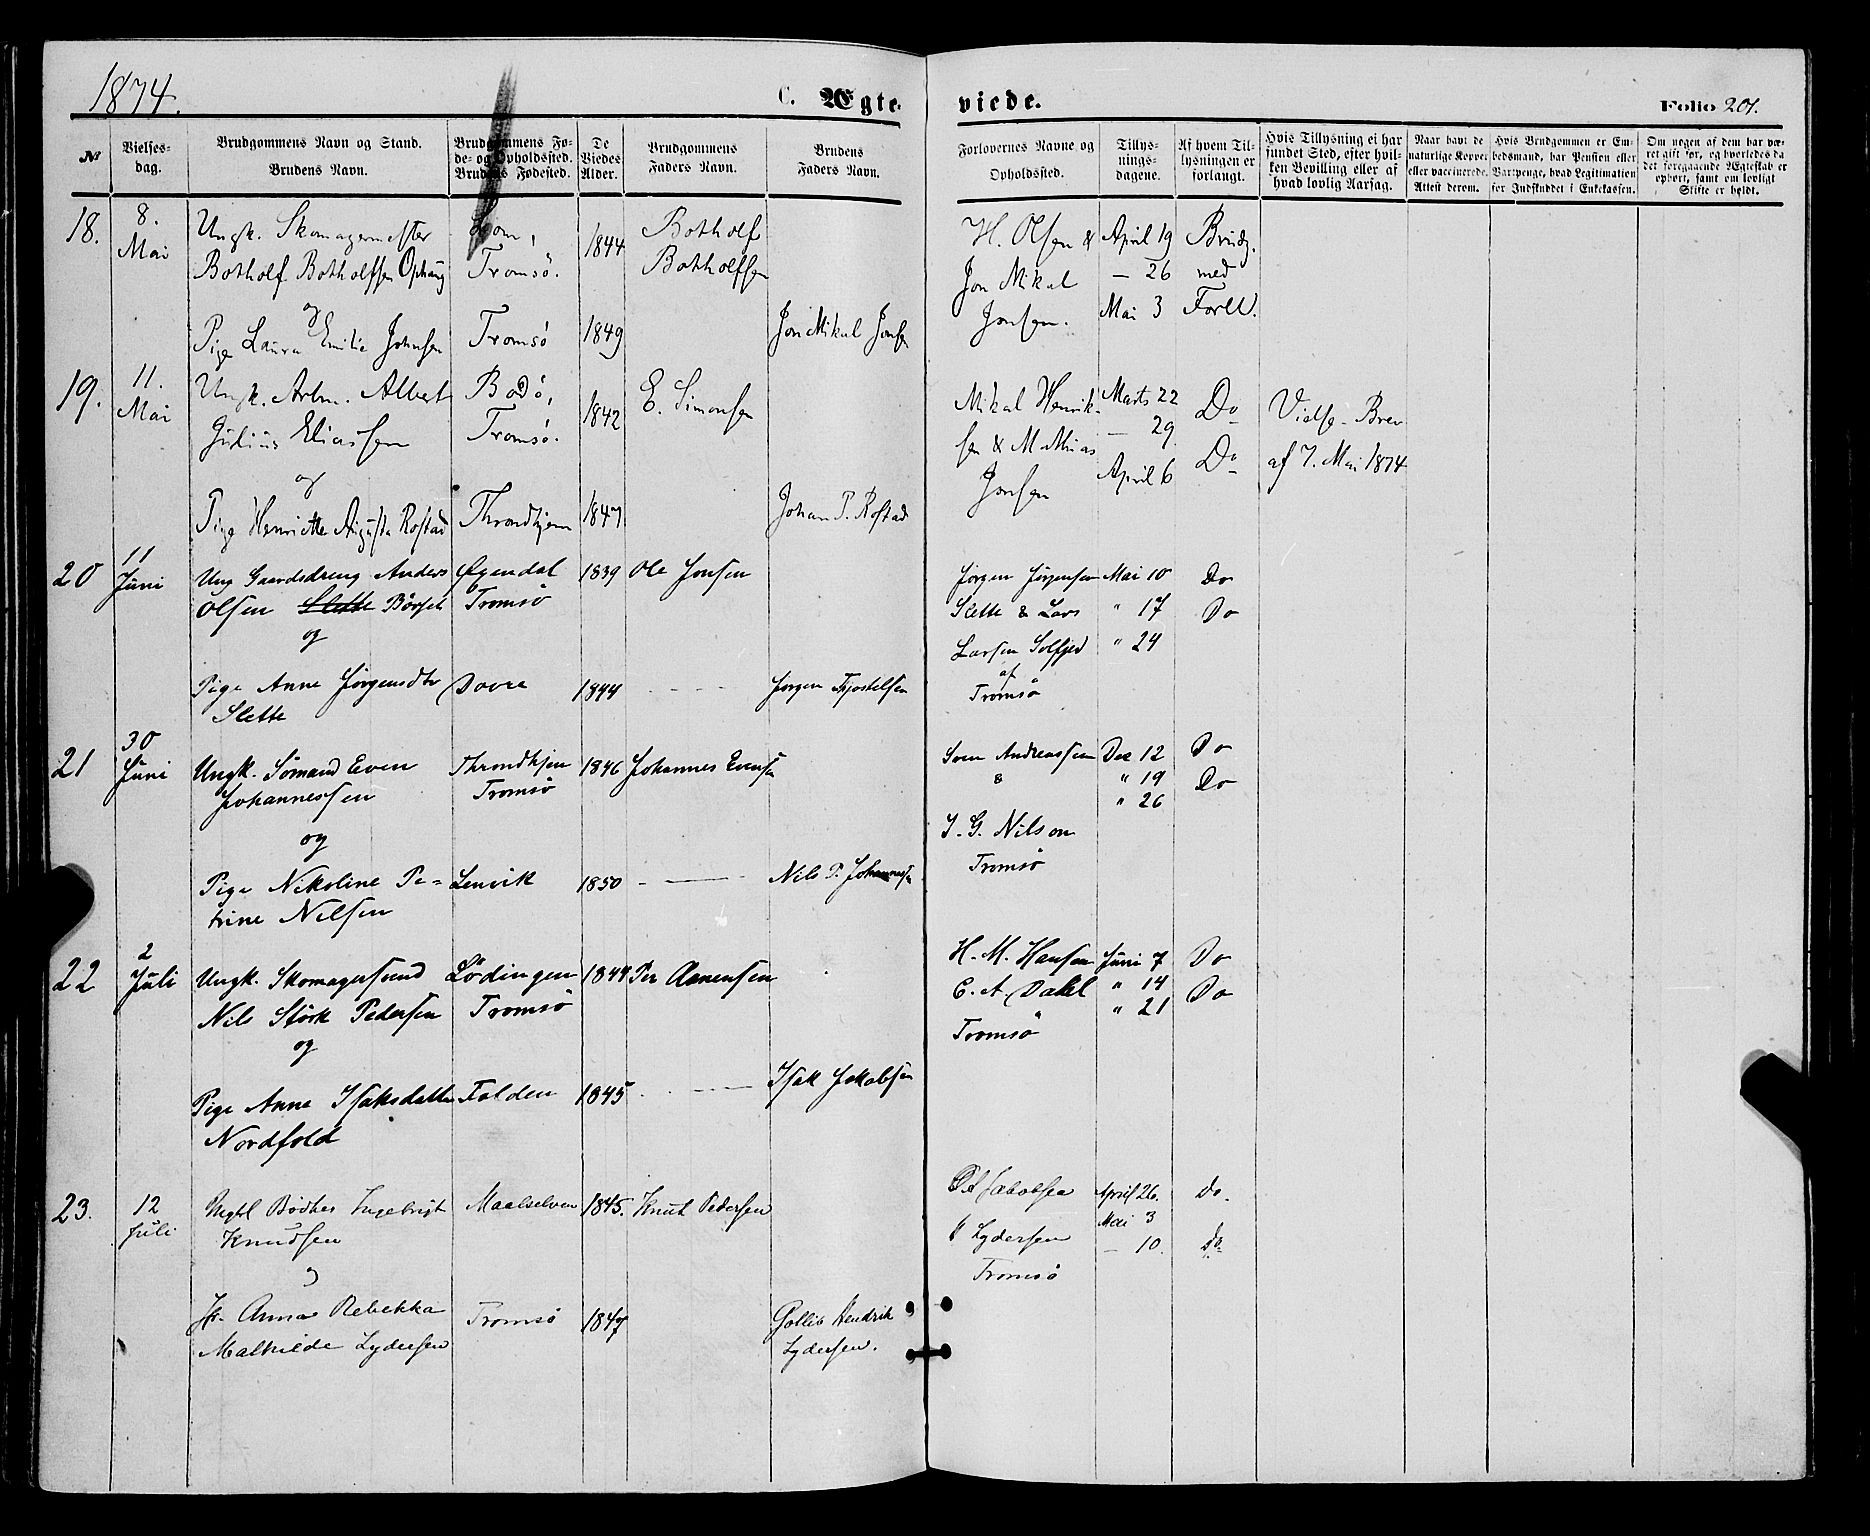 1874.
C. Ægte-
viede.
Folio 201.
№
Vielses-
dag.
Brudgommens Navn og Stand.
Brudens Navn.
Brudgommens Fø-
de- og Opholdssted.
Brudens Fødested.
De
Viedes
Alder.
Brudgommens
Faders Navn.
Brudens
Faders Navn.
Forlovernes Navne og
Opholdssted.
Tillys-
nings-
dagene.
Af hvem Til-
lysningen er
forlangt.
Hvis Tillysning ei har
fundet Sted, efter hvil-
ken Bevilling eller af
hvad lovlig Aarsag.
Naar havt de
naturlige Kopper
eller vaccinerede.
Attest derom.
Hvis Brudgommen er Em-
bedsmand, har Pension eller
Vartpenge, hvad Legitimation
for Indskuddet i Enkekassen.
Om nogen af dem har væ-
ret gift før, og hvorledes da
det foregaaende Ægteskab er
ophørt, samt om lovligt
Skifte er holdt.
18.
8.
Mai
Ungk. Skomagermester
Botholf Botholfsen Ophaug
og
Pige Laura Emilie Johnsen
Lom,
Tromsö.
Tromsö
1844
1849
Botholf
Botholfsen
Jon Mikal Jonsen
H. Olsen &
Jon Mikal
Jonsen.
April 19
— 26
Mai 3
Brudg.
med
Forll.
19.
11.
Mai
Ungk. Arbm. Albert
Julius Eliassen
og
Pige Henriette Augusta Rostad
Bodö,
Tromsö.
Throndhjem
1842
1847
E. Simonsen
Johan P. Rostad
Mikal Henrik-
sen & Mathias
Jonsen
Marts 22
— 29
April 6
Do
Do
Vielse-Brev
af 7. Mai 1874
20
11
Juni
Ung Gaardsdreng Anders
Olsen Slette Börset
og
Pige Anne Jørgensdtr
Slette
Øxendal
Tromsö
Dovre
1839
1844
Ole Jonsen
Jørgen Kjostelsen
Jørgen Jørgensen
Slette & Lars
Larsen Solfjed
af
Tromsö
Mai 10
" 17
" 24
Do
Do
21
30
Juni
Ungk. Sömand Even
Johannessen
og
Pige Nikoline Pe-
trine Nilsen
Throndhjem
Tromsö
Lenvik
1846
1850
Johannes Evensen
Nils P. Johannesen
Sven Andreassen
&
J. G. Nilson
Tromsö
Dec 12
" 19
" 26
Do
Do
22
2
Juli
Ungk. Skomagersvend
Nils Störk Pedersen
og
Pige Anne Isaksdatter
Nordfold
Lödingen
Tromsö
Folden
1844
1845
Per Arnensen
Isak Jakobsen
H. M. Hansen
C. A. Dahl
Tromsö
Juni 7
" 14
" 21
Do
Do
23.
12
Juli
Ungkl Bødker Ingebrigt
Knudsen
og
Jfr. Anna Rebekka
Mathilde Lydersen
Maalselven
Tromsö
1845.
1847
Knut Pedersen
Gollib Hendrik
Lydersen.
Jakobsen
Lydersen
Tromsö
April 26.
Mai 3
— 10.
do.
do